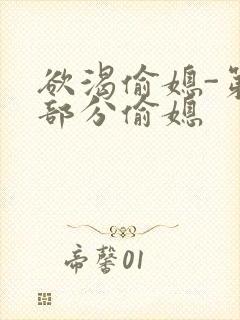 欲渴偷媳-第
部分偷媳
帝馨01